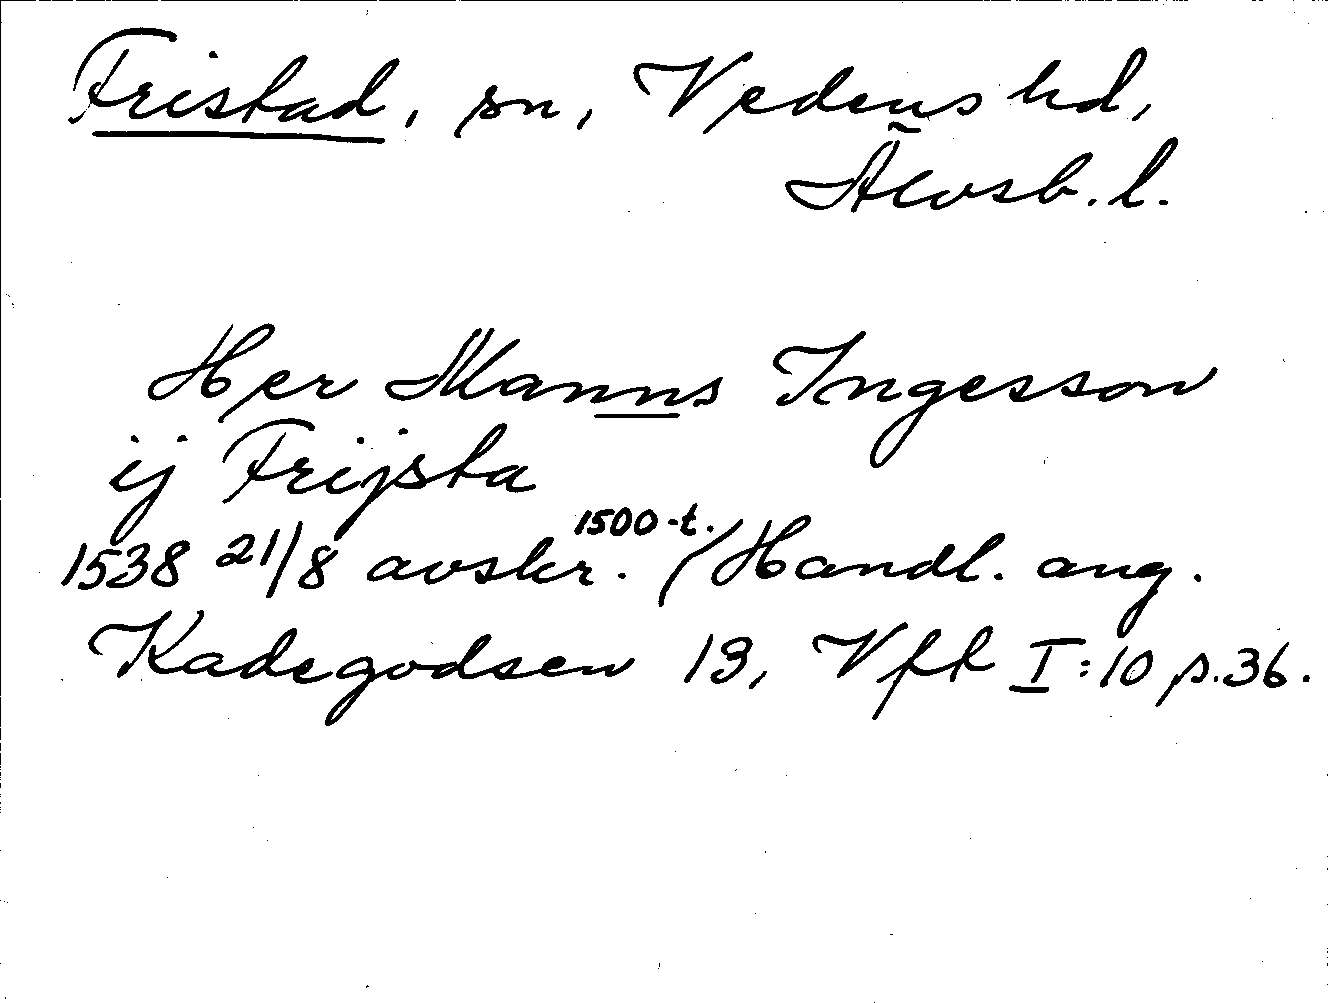 Fristad, sn, Vedens hd,
Älvsb. l.
Her Manns Ingesson
ij Frijsta
1538 21/8 avskr. 1500-t. (Handl. ang.
Kadegodsen 13, Vfk I:10 s.36.